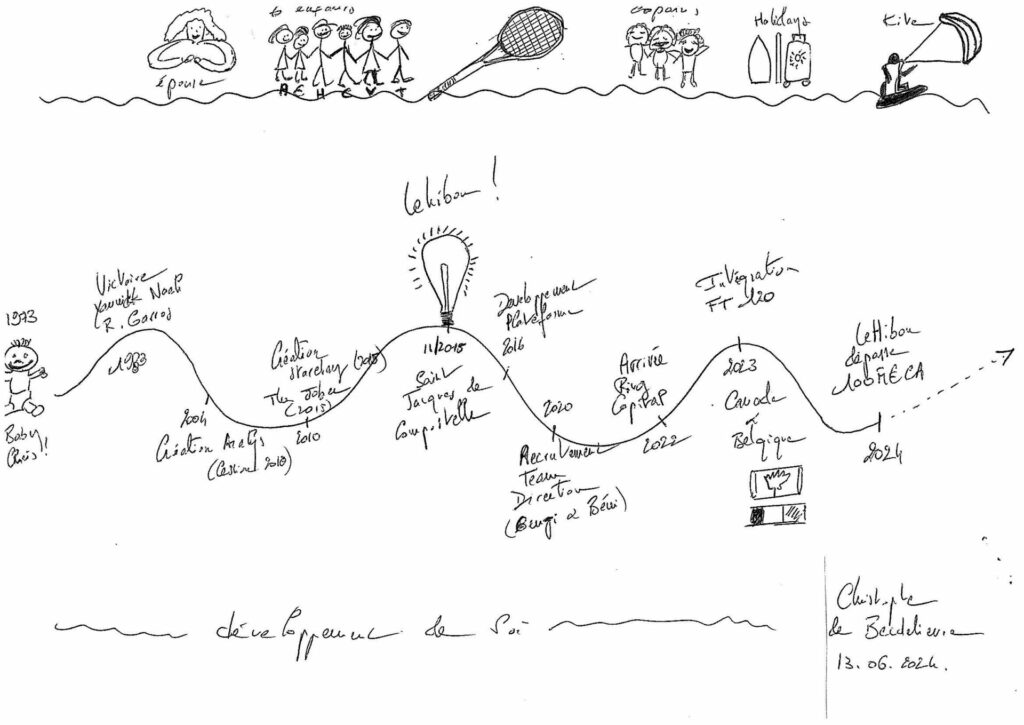 épouse
6 enfants
A E H E V T
copains
Holidays
Kite
LeHibou !
1973
Baby
Chris !!
Victoire
Yannick Noah
R. Garros
1983
2004
Création Aralys
(Cession 2018)
Création
(2018)
The Jober
(2015)
2010
11/2015
Saint
Jacques de
Compostelle
Développement
Plateforme
2016
2020
Recrutement
Team
Direction
(Bengi & Béni)
Arrivée
Ring
Capital
2022
Intégration
FT 120
2023
Canada
&
Belgique
LeHibou
dépasse
100 M€ CA
2024
développement de Soi
Christophe
de
13.06.2024.